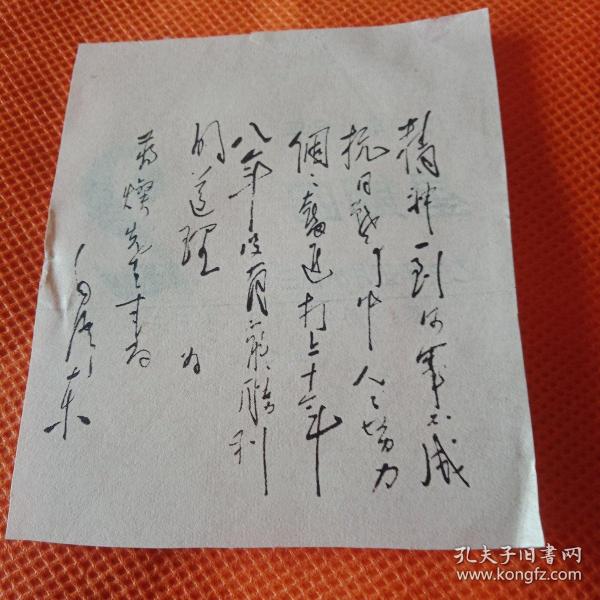 精神一到何事不成
抗日战争中人人努力
個〻奮進打上十年
八年没有不能勝利
的道理 为
蒋燦先生书
毛泽东
孔夫子旧书网
www.kongfz.com